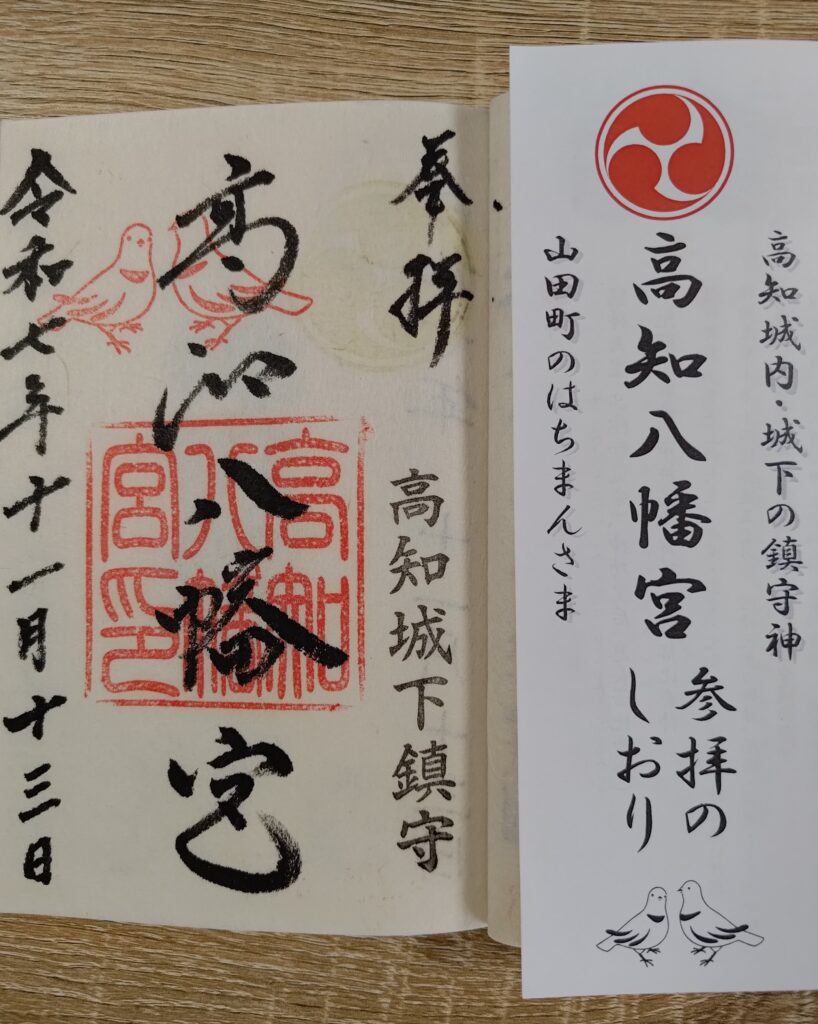 奉拝
高知城下鎮守
高知八幡宮
高知八幡宮印
令和七年十一月十三日
高知城内・城下の鎮守神
高知八幡宮
参拝の
しおり
山田町のはちまんさま